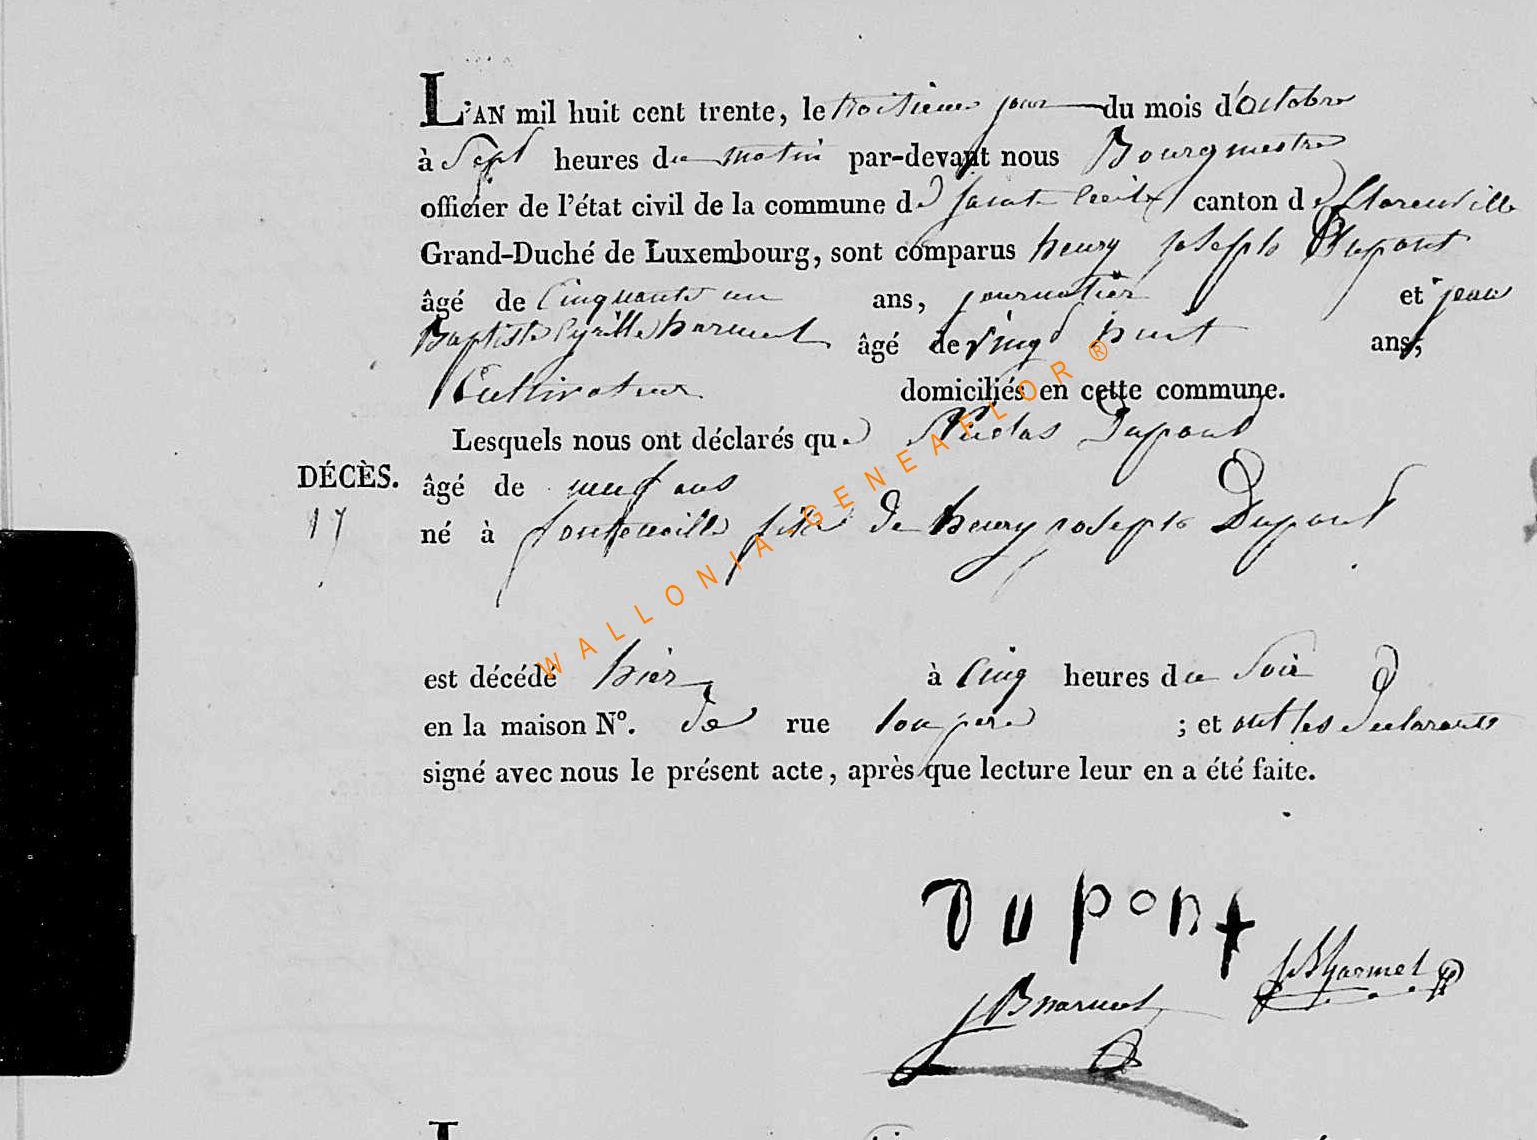 L'AN mil huit cent trente, le troisieme jour du mois d'octobre
à Sept heures du matin par-devant nous Bourgmestre
officier de l'état civil de la commune de sainte Cecile canton de florenville
Grand-Duché de Luxembourg, sont comparus henry joseph Dupont
âgé de Cinquante un ans, journalier et jean
Baptiste Cyrille harmel âgé de vingt huit ans,
Cultivateur domiciliés en cette commune.
Lesquels nous ont déclarés que Nicolas Dupont
DÉCÈS. âgé de neuf ans
17 né à fontenoille fils de henry joseph Dupont
est décédé hier à Cinq heures du Soir
en la maison N°. de rue son pere ; et ont les declarants
signé avec nous le présent acte, après que lecture leur en a été faite.
Dupont
JBharmel
JBharmel
WALLONIA-GENEAFLOR®
L